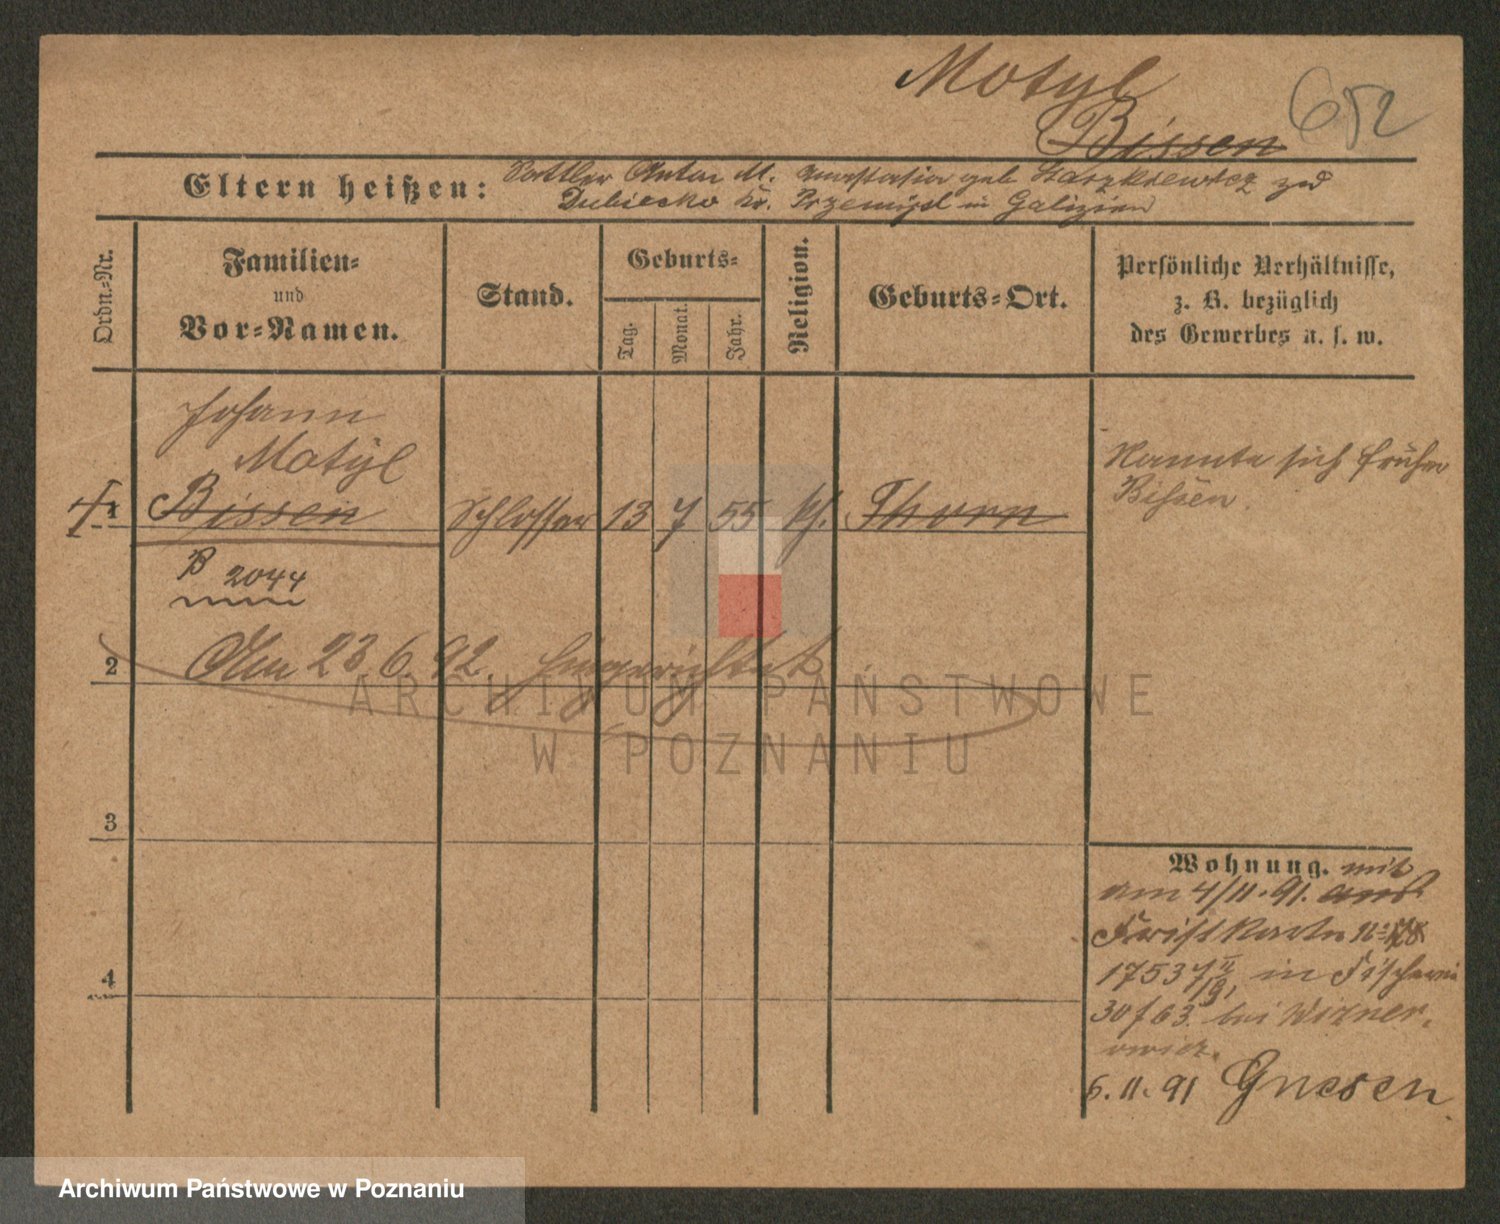 Motyl
Bissen
652
Eltern heißen: Sattler Anton M. Anastasia geb. zu
Dubiecko Kr. Przemysl in Galizien
Ordn.-Nr.
Familien-
und
Vor-Namen.
Stand.
Geburts-
Tag.
Monat.
Jahr.
Religion.
Geburts-Ort.
Persönliche Verhältnisse,
z. B. bezüglich
des Gewerbes u. s. w.
Johann
Motyl
1 Bissen Schlosser 13 7 55 k. Thorn
Nannte sich früher
Bissen.
B 2044
2 Am 23 6. 92. hingerichtet
3
4
Wohnung. mit
am 4/11. 91. aus
in Fischerei
30 bei
6. 11. 91 Gnesen.
ARCHIWUM PAŃSTWOWE
W POZNANIU
Archiwum Państwowe w Poznaniu